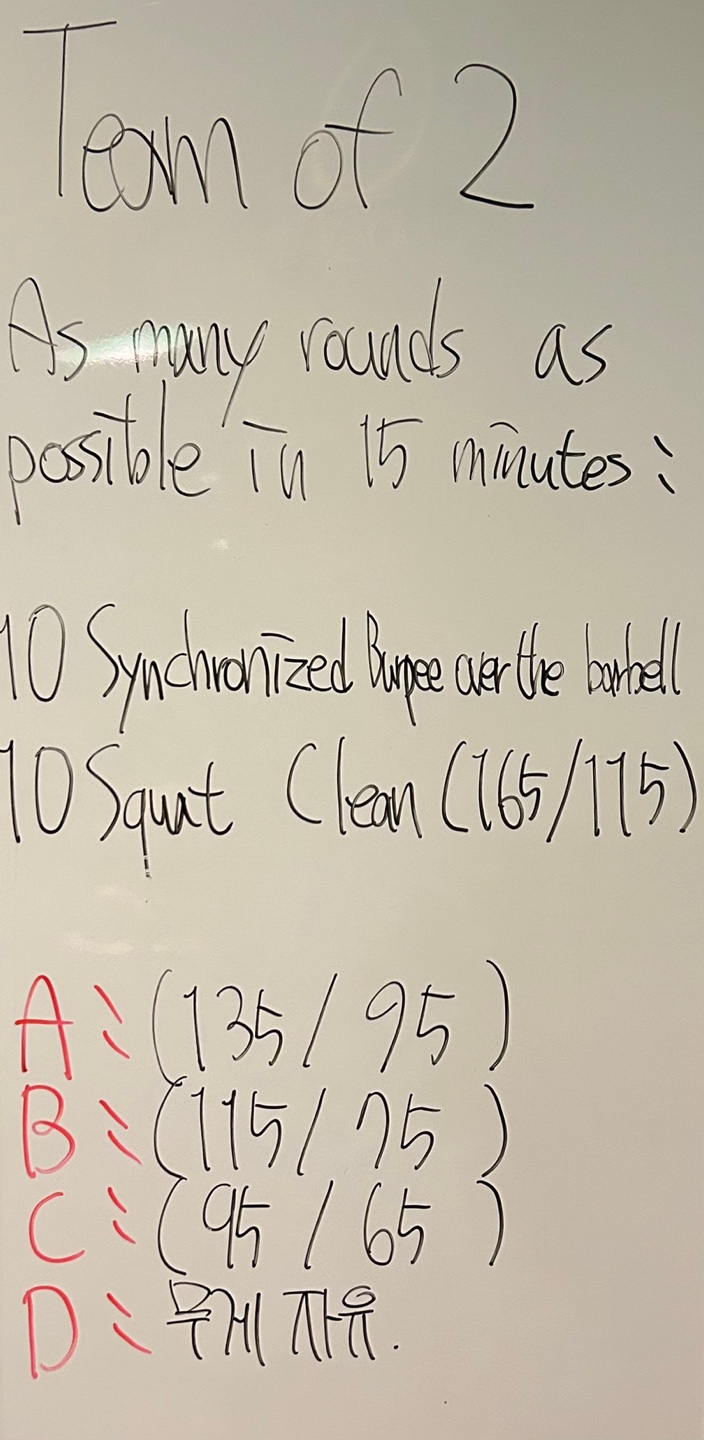 Team of 2
As many rounds as
possible in 15 minutes:
10 Synchronized Burpee over the barbell
10 Squat Clean (165/115)
A: (135/ 95 )
B: (115/ 75 )
C: ( 95 / 65 )
D: 무게 자유.